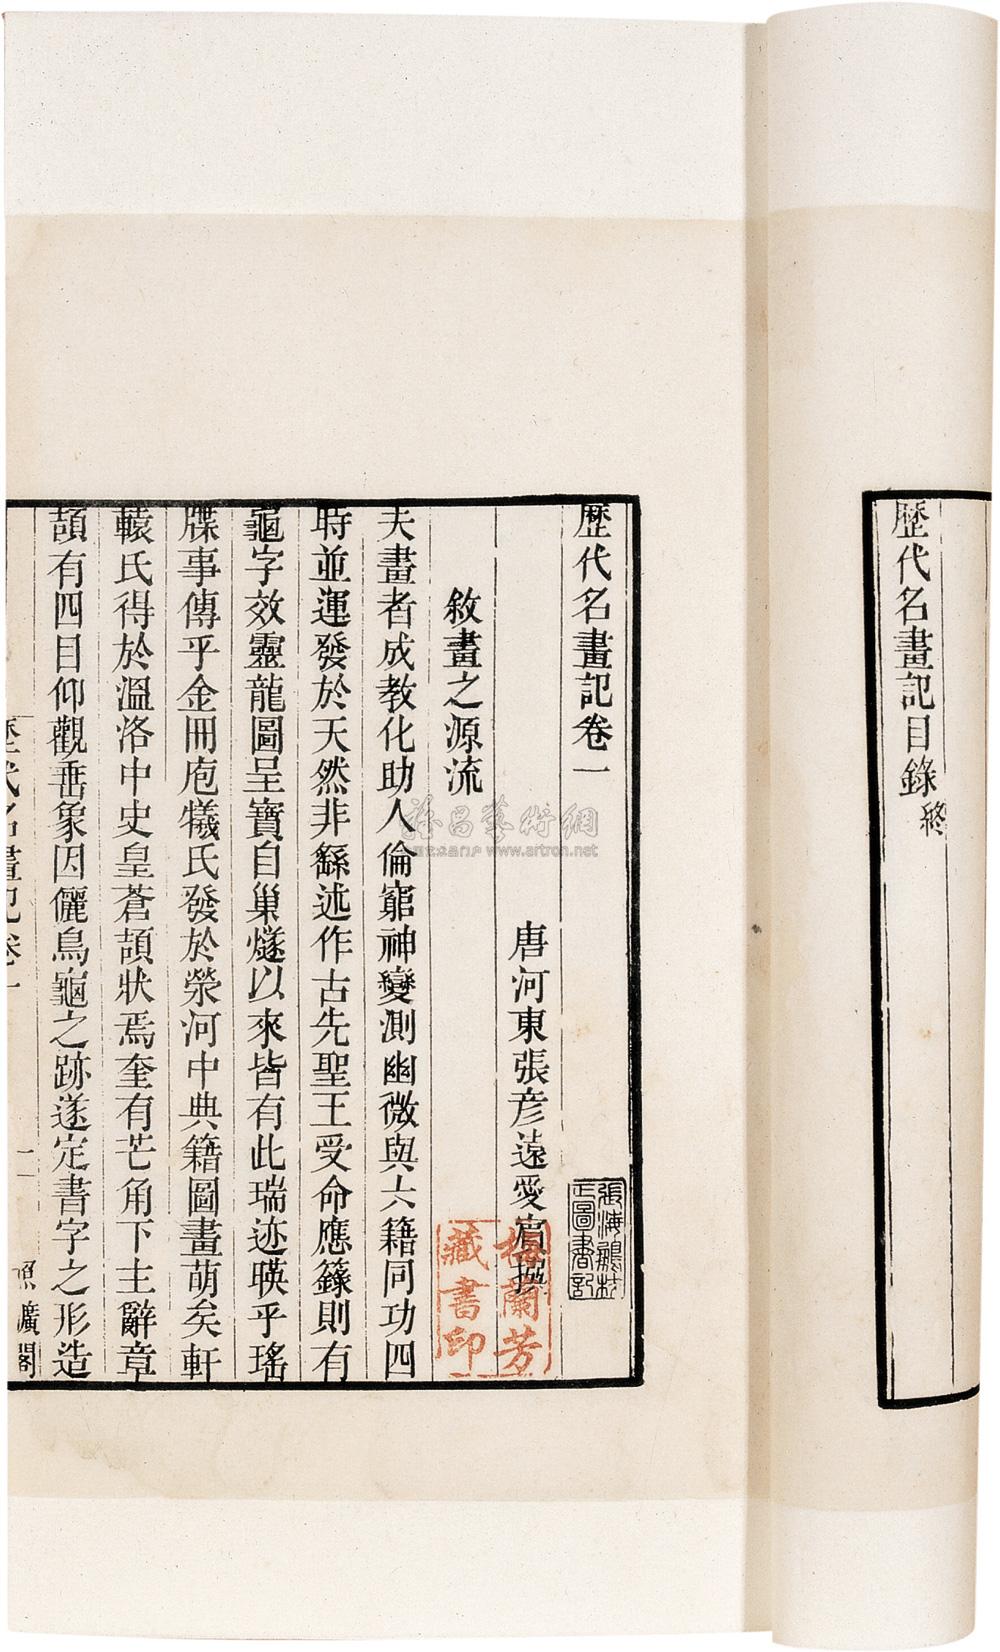 歷代名畫記目錄終
歷代名畫記卷一
唐河東張彥遠愛賓撰
敘畫之源流
夫畫者成教化助人倫窮神變測幽微與六籍同功四
時並運發於天然非繇述作古先聖王受命應籙則有
龜字效靈龍圖呈寶自巢燧以來皆有此瑞迹暎乎瑤
牒事傳乎金冊庖犧氏發於滎河中典籍圖畫萌矣軒
轅氏得於溫洛中史皇蒼頡狀焉奎有芒角下主辭章
頡有四目仰觀垂象因儷鳥龜之跡遂定書字之形造
歷代名畫記卷一
二
照曠閣
張海鵬校
正圖書記
梅蘭芳
藏書印
雅昌藝術網
www.artron.net